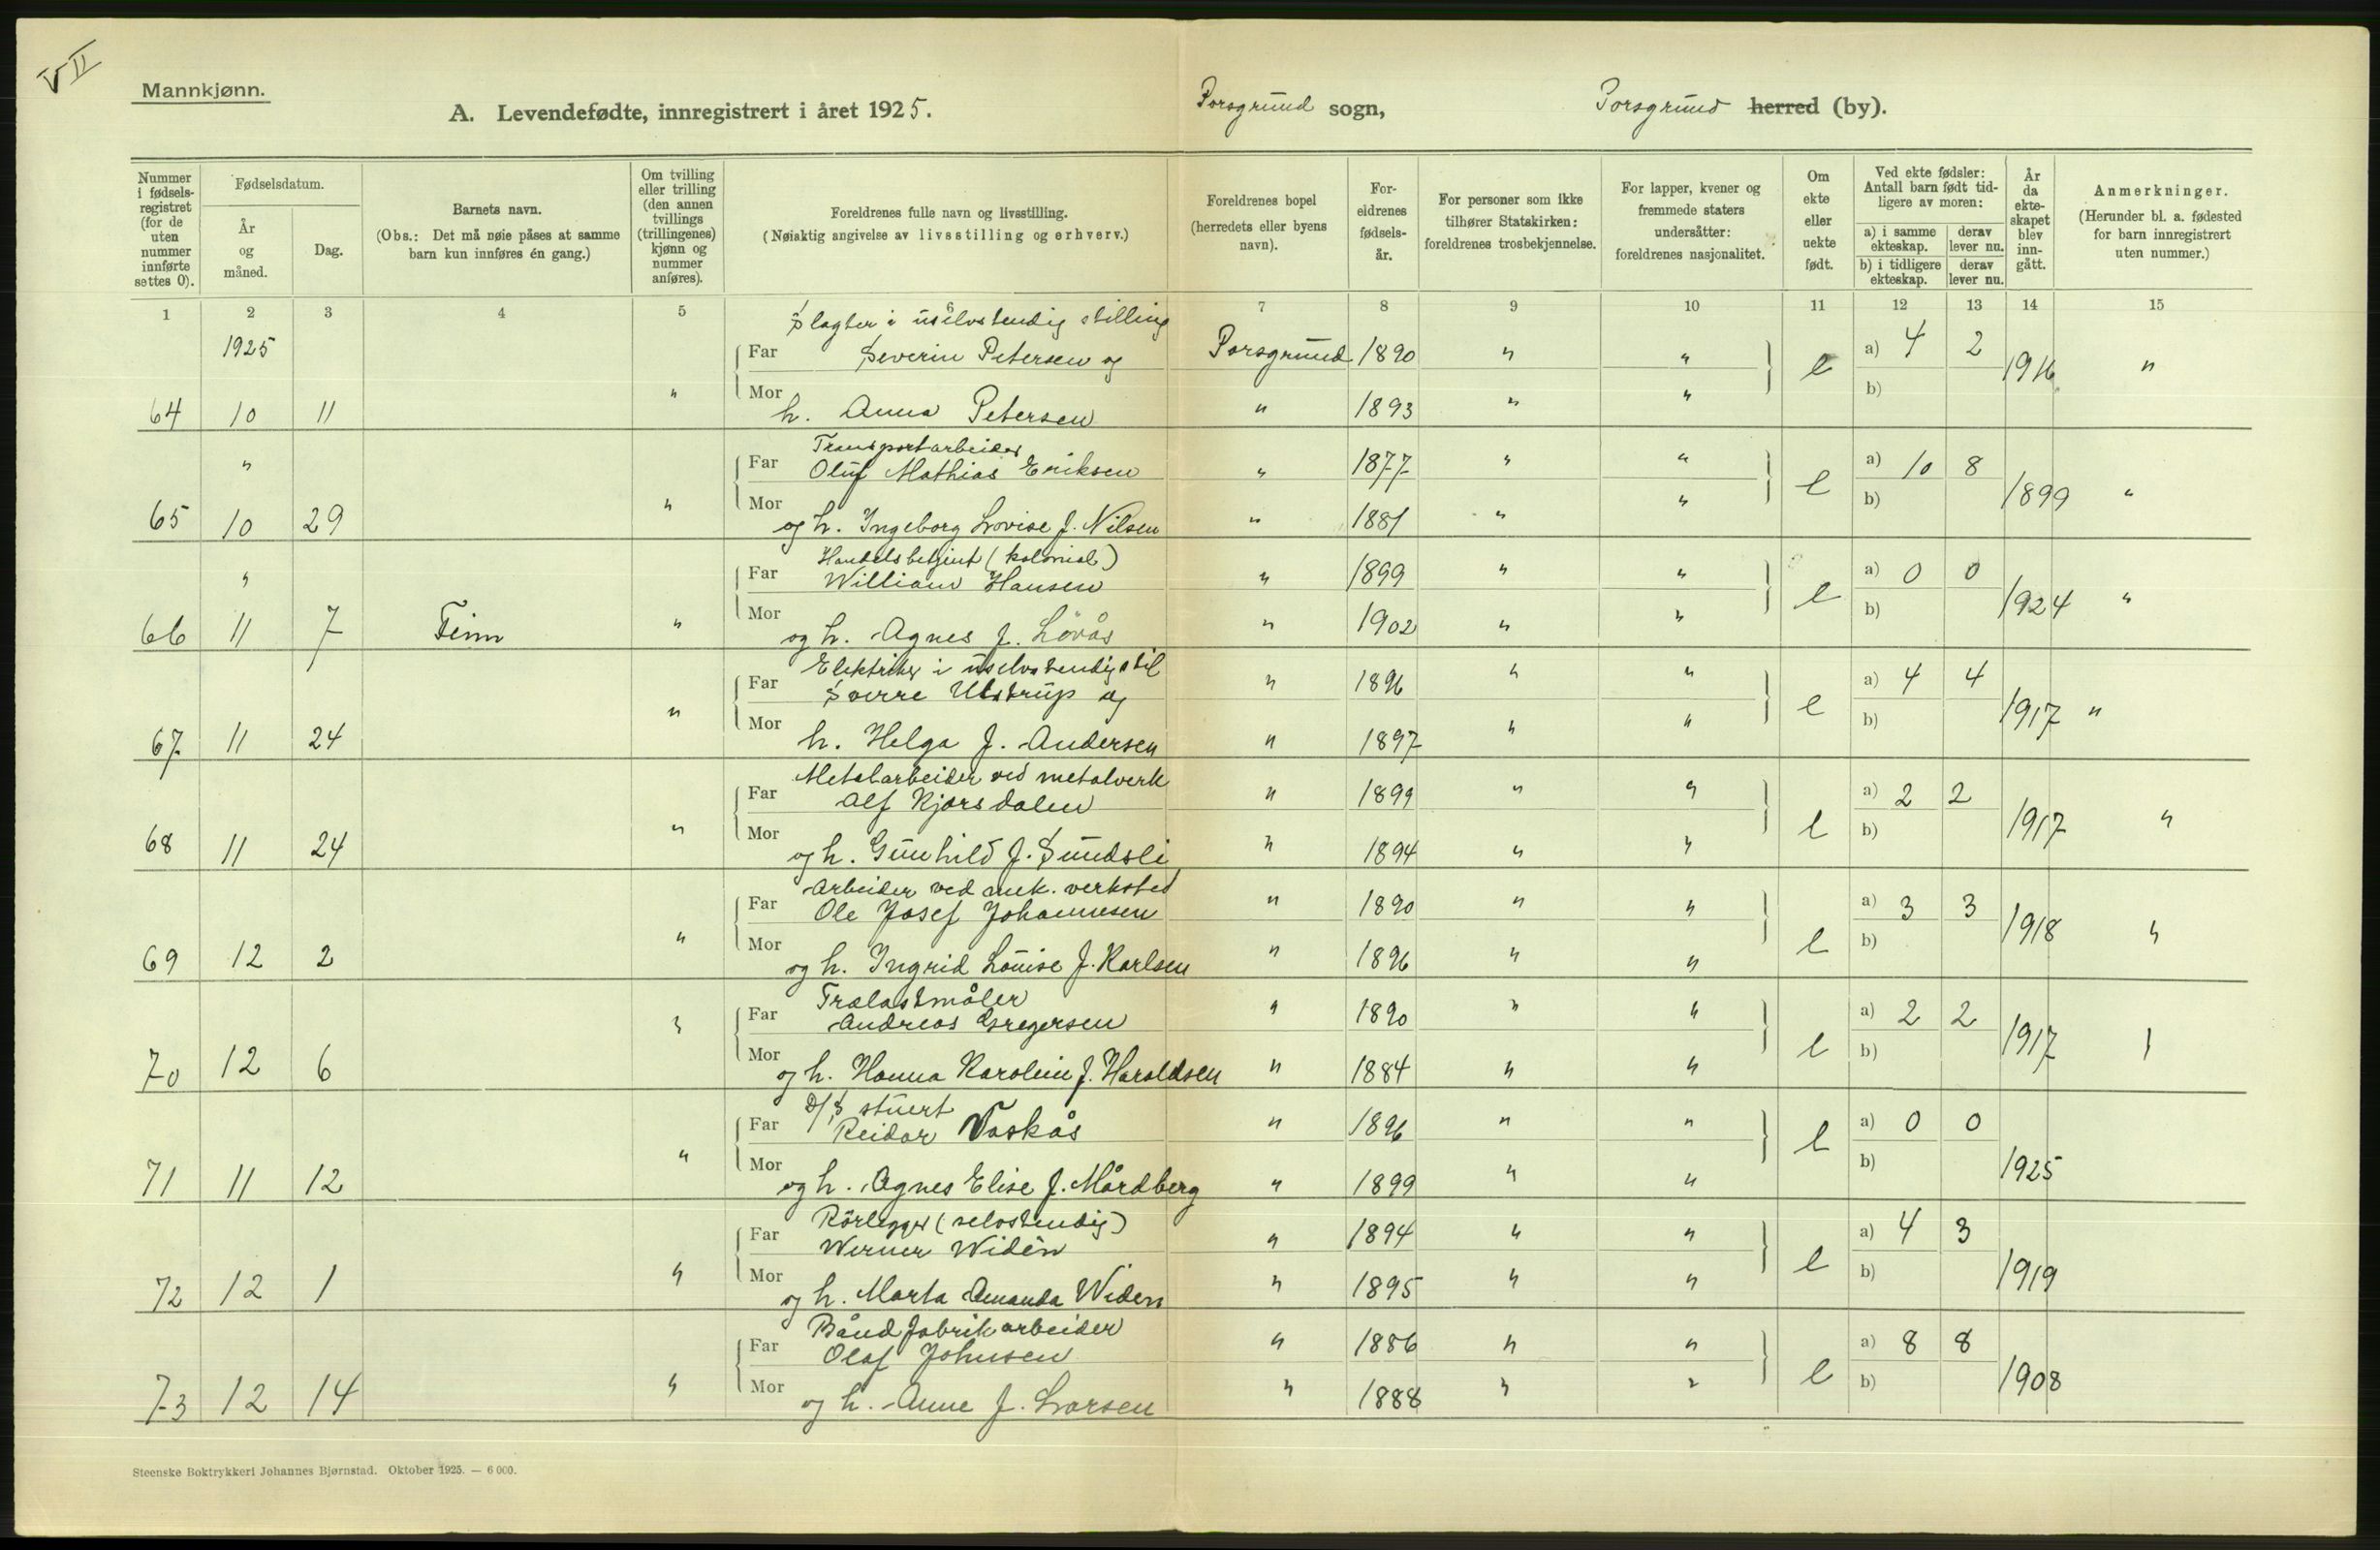 VII
Mannkjønn.
A. Levendefødte, innregistrert i året 1925.
Porsgrund sogn,
Porsgrund herred (by).
Nummer i fødsels-registret (for de uten nummer innførte settes 0).
Fødselsdatum.
År og måned.
Dag.
Barnets navn.
(Obs.: Det må nøie påses at samme barn kun innføres én gang.)
Om tvilling eller trilling (den annen tvillings (trillingenes) kjønn og nummer anføres).
Foreldrenes fulle navn og livsstilling.
(Nøiaktig angivelse av livsstilling og erhverv.)
Foreldrenes bopel (herredets eller byens navn).
For-eldrenes fødsels-år.
For personer som ikke tilhører Statskirken: foreldrenes trosbekjennelse.
For lapper, kvener og fremmede staters undersåtter: foreldrenes nasjonalitet.
Om ekte eller uekte født.
Ved ekte fødsler: Antall barn født tid-ligere av moren:
a) i samme ekteskap.
derav lever nu.
b) i tidligere ekteskap.
derav lever nu.
År da ekte-skapet blev inn-gått.
Anmerkninger.
(Herunder bl. a. fødested for barn innregistrert uten nummer.)
1 2 3 4 5 6 7 8 9 10 11 12 13 14 15
Slagter i uselvstendig stilling
1925 Far Severin Petersen og Porsgrund 1890 " " e a) 4 2 1916 "
64 10 11 " Mor h. Anna Petersen " 1893 " " b)
Transportarbeider
" Far Oluf Mathias Eriksen " 1877 " " e a) 10 8 1899 "
65 10 29 " Mor og h. Ingeborg Lovise f. Nilsen " 1881 " " b)
Handelsbetjent (kolonial)
" Far William Hansen " 1899 " " e a) 0 0 1924 "
66 11 7 Finn " Mor og h. Agnes f. Lövås " 1902 " " b)
Elektriker i uselvstendig stil
Far Sverre Ulstrup og " 1896 " " e a) 4 4 1917 "
67 11 24 " Mor h. Helga f. Andersen " 1897 " " b)
Metalarbeider ved metalverk
Far Alf Kjørsdalen " 1899 " " e a) 2 2 1917 "
68 11 24 " Mor og h. Gunhild f. Sundsli " 1894 " " b)
Arbeider ved mek. verksted
Far Ole Josef Johannesen " 1890 " " e a) 3 3 1918 "
69 12 2 " Mor og h. Ingrid Louise f. Karlsen " 1896 " " b)
Trælastmåler
Far Andreas Gregersen " 1890 " " e a) 2 2 1917 "
70 12 6 " Mor og h. Hanna Karoline f. Haraldsen " 1884 " " b)
D/S stuert
Far Reidar Vaskås " 1896 " " e a) 0 0 1925
71 11 12 " Mor og h. Agnes Elise f. Mårdberg " 1899 " " b)
Rörlegger (selvstendig)
Far Werner Widén " 1894 " " e a) 4 3 1919
72 12 1 " Mor og h. Marta Amanda Widen " 1895 " " b)
Båndfabrikarbeider
Far Olaf Johnsen " 1886 " " e a) 8 8 1908
73 12 14 " Mor og h. Anne f. Larsen " 1888 " " b)
Steenske Boktrykkeri Johannes Bjørnstad. Oktober 1925. — 6 000.